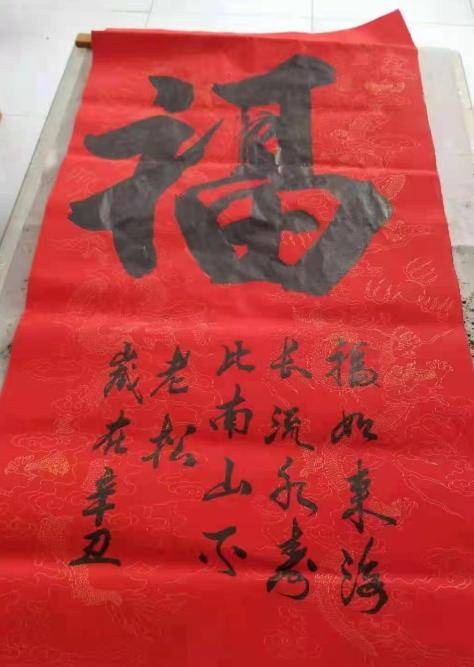 福
福如东海
长流水寿
比南山不
老松
歲在辛丑